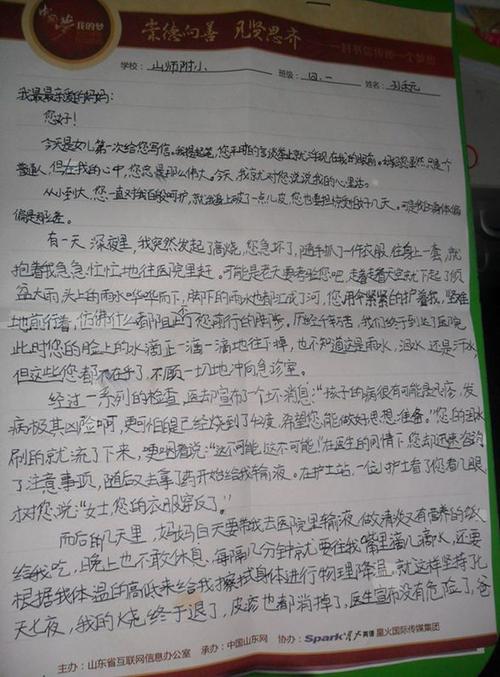 中国梦 我的梦
崇德向善 见贤思齐
一封书信传递一个梦想
学校:山师附小 班级:四.一 姓名:
我最最亲爱的妈妈:
您好!
今天是女儿第一次给您写信。我提起笔,您平时的言谈举止就浮现在我的眼前。妈妈您虽然只是个
普通人,但在我的心中,您总是那么伟大。今天,我就对您说说我的心里话。
从小到大,您一直对我百般呵护,就我身上破了一点儿皮,您也要担惊受怕好几天。可是我的身体偏
偏是
有一天深夜里,我突然发起了高烧,您急坏了,随手抓了一件衣服,往身上一套,就
抱着我急急忙忙地往医院里赶。可能是老天要考验您吧,走着走着天空就下起了倾
盆大雨,头上的雨水哗哗而下,脚下的雨水也都汇成了河,您用伞紧紧的护着我,艰难
地前行着,仿佛什么都阻止不了您前行的脚步。历经千辛万苦,我们终于到达了医院
此时您的脸上的水滴正一滴一滴地往下掉,也不知道这是雨水,泪水,还是汗水,
但这些您都不在乎了,不顾一切地冲向急诊室。
经过一系列的检查,医生却宣布了个坏消息:“孩子的病很有可能是风疹,发
病极其凶险啊,更可怕的是已经烧到了42度,希望您能做好思想准备。”您的泪水
刷的就流了下来,哽咽着说:“这不可能,这不可能!”在医生的同情下,您却迅速咨询
了注意事项,随后又去拿了药开始给我输液。在护士站,一位护士看了您看几眼,
对您说:“女士,您的衣服穿反了。”
而后的几天里,妈妈白天要带我去医院里输液,做清淡又有营养的饭
给我吃,晚上也不敢休息,每隔几分钟就要往我嘴里滴几滴水,还要
根据我体温的高低来给我擦拭身体进行物理降温,就这样坚持了七
天七夜,我的烧终于退了,皮疹也都消掉了,医生宣布没有危险了,爸
主办:山东省互联网信息办公室 承办:中国山东网 协办:Spark星火英语 星火国际传媒集团